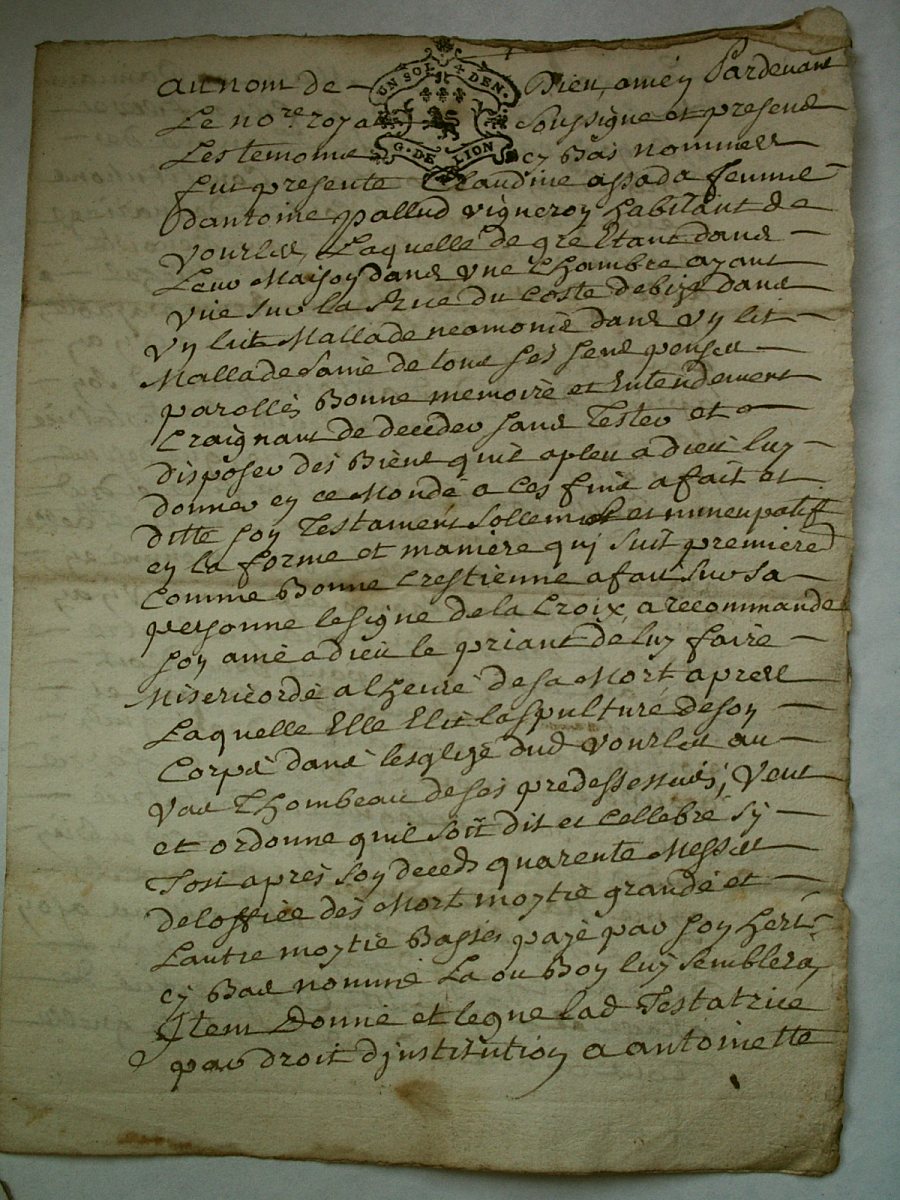 au nom de Dieu, amen Pardevant
UN SOL 4 DEN.
G. DE LION
Le no.re royal soussigne et presend
Les temoins cy Bas nommes
fut presente Claudine assada femme
Dantoine pallud vigneron habitant de
Vourles, Laquelle de gré Etant dans
Leur Maison dans Vne Chambre ayant
Vüe sur la Rue du Coste debize dans
Vn lict Mallade neomoins dans Vn lit
Mallade saine de tous ses sens pensés
parolles Bonne memoire et Entendement
Craignant de deceder sans Tester et
disposer des Biens quil a pleu a dieu luy
donner en ce Monde a Ces fins a fait et
ditte son Testament sollemnel et nuncupatif
en la forme et maniere quj suit premiere
Comme Bonne Crestienne a fait sur sa
personne le signe de la Croix, a recommande
son ame a dieu le priant de luy faire
Misericorde a lheure de sa Mort apres
Laquelle Elle Elit la spulture de son
Corps dans lesglize dud Vourles au
Vas Thombeau de ses predessesseurs; Veut
et ordonne quil soit dit et Cellebré sy
Tost apres son deceds quarente Messes
de loffice des Mort moytie grande et
Lautre moytie Basses payé par son hert.
cy Bas nommé La ou Bon luy semblera,
Jtem Donne et legue lad Testatrice
par droit djnstitution a antoinette